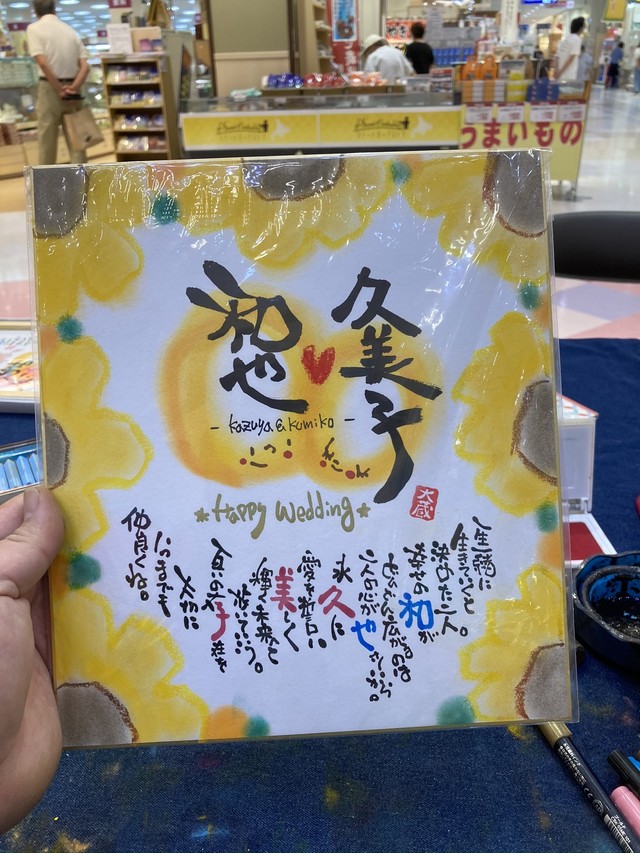 うまいもの
久美子
和也
- kazuya & kumiko -
*Happy Wedding*
大蔵
一生一緒に
生きていくと
決めた二人。
幸せの和が
どんどん広がるのは
二人の心がやさしいから。
永久に
愛を誓い
美しく
輝く未来へと
歩いて行こう。
大切に
いつまでも
仲良くね。